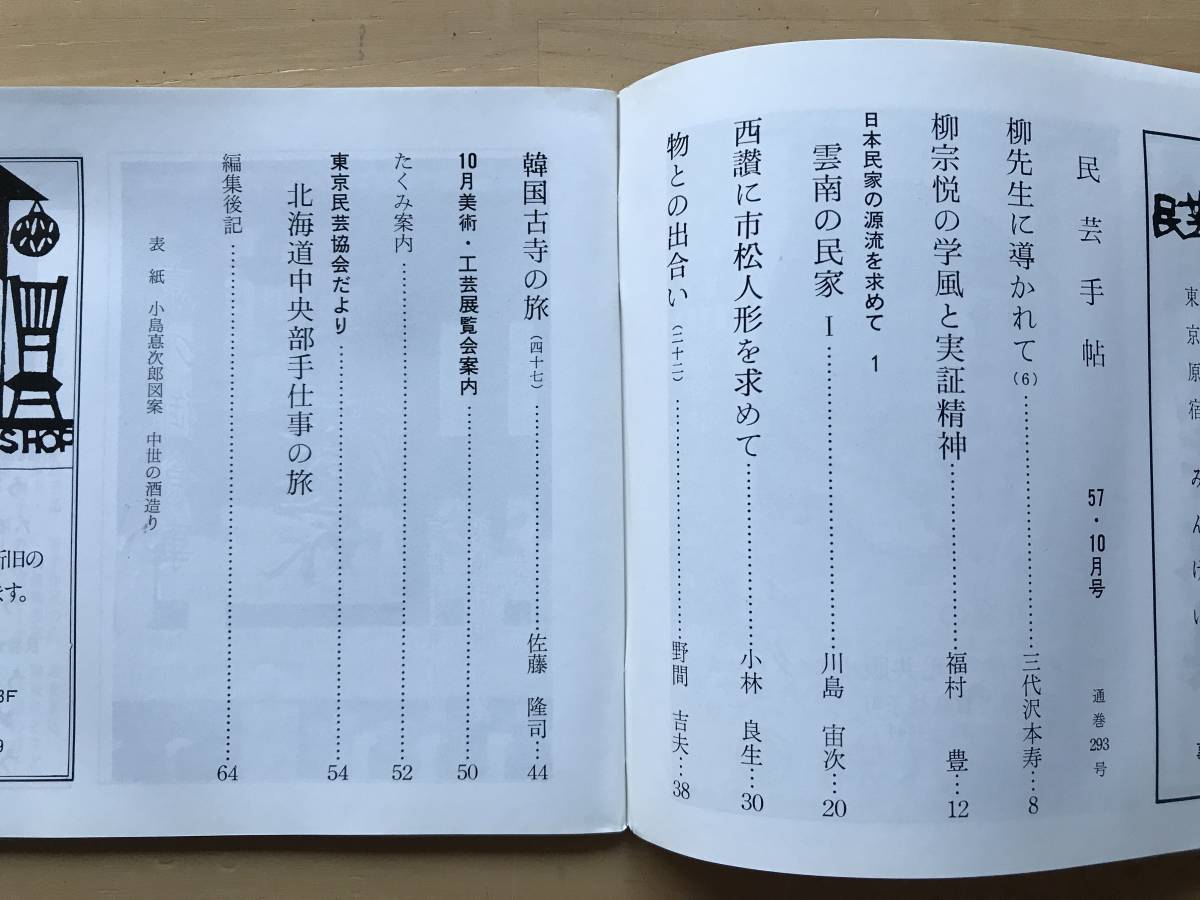 民芸
東京原宿 みんげい
民芸手帖 57・10月号 通巻293号
柳先生に導かれて(6)…………三代沢本寿…8
柳宗悦の学風と実証精神…………福村 豊…12
日本民家の源流を求めて 1
雲南の民家 Ⅰ…………川島 宙次…20
西讃に市松人形を求めて…………小林 良生…30
物との出合い(二十二)…………野間 吉夫…38
韓国古寺の旅(四十七)…………佐藤 隆司…44
10月美術・工芸展覧会案内…………50
たくみ案内…………52
東京民芸協会だより…………54
北海道中央部手仕事の旅
編集後記…………64
表紙 小島悳次郎図案 中世の酒造り
SHOP
新旧の
ます。
3F
9